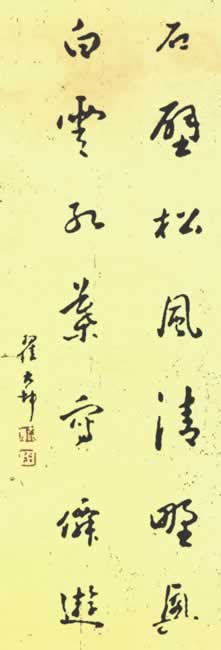 石壁松風清野興
白雲紅葉寫僊遊
翟大坤